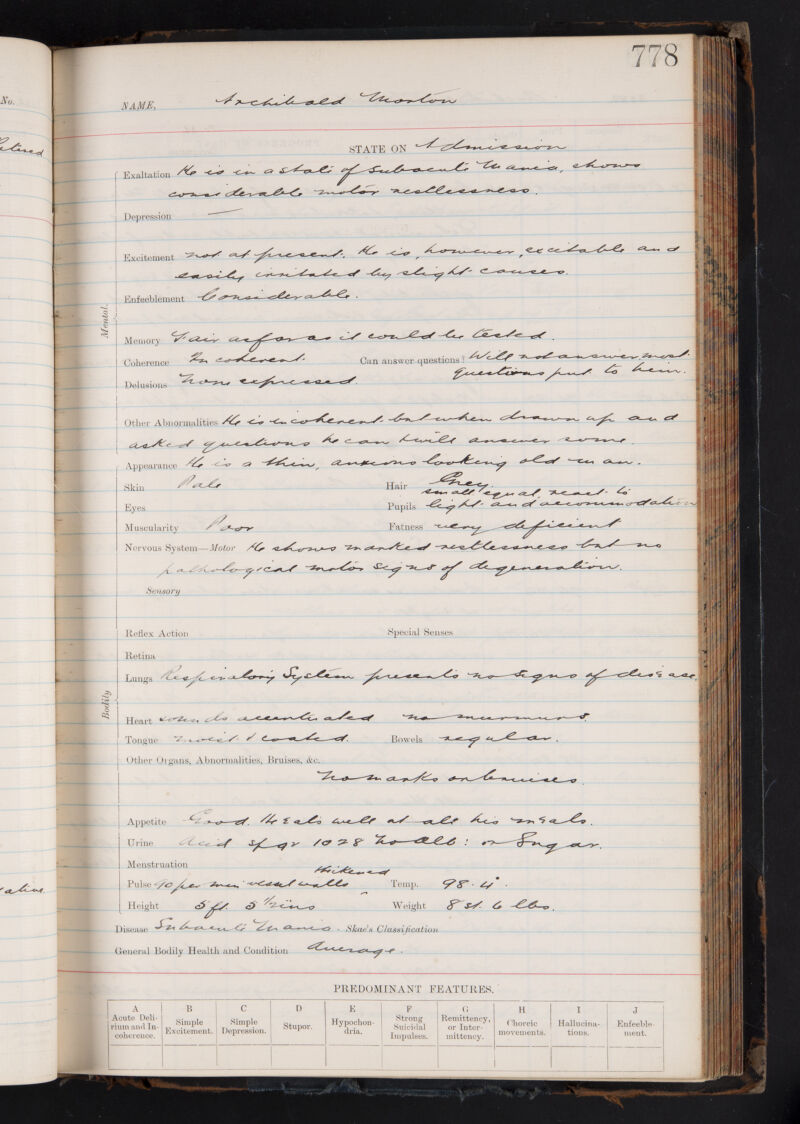 778
No.
NAME, Archibald Morton
STATE ON Admission
Exaltation He is in a state of Subacute Mania, shows
considerable motor restlessness.
Depression —
Excitement not at present. He is, however, excitable and
easily irritated by slight causes.
Mental.
Enfeeblement Considerable.
Memory Fair as far as it could be tested.
Coherence Incoherent. Can answer questions? Will not answer most
questions put to him.
Delusions None expressed
Other Abnormalities He is incoherent but when drawn up and
asked questions he can & will answer some.
Appearance He is a thin, anxious looking old man.
Skin Pale Hair Grey.
Eyes Pupils small equal, react to
light and accommodation
Muscularity Poor Fatness very deficient
Nervous System—Motor He shows marked restlessness but no
pathological motor signs of degeneration.
Sensory
Reflex Action Special Senses
Retina
Lungs Respiratory System presents no signs of disease.
Bodily
Heart sounds accentuated no murmurs.
Tongue moist & coated. Bowels regular.
Other Organs, Abnormalities, Bruises, &c.
No marks or bruises.
Appetite Good. He eats well at all his meals.
Urine Acid sp gr 1028 No Alb: or Sugar.
Menstruation
Pulse 90 per min vessel walls thickened ‸ Temp. 98.4°.
Height 5 ft. 5 1/2 ins Weight 8 st. 6 lbs.
Disease Subacute Mania. Skae's Classification
General Bodily Health and Condition Average.
PREDOMINANT FEATURES.
A B C D E F G H I J
Acute Delirium and Incoherence. Simple Excitement. Simple Depression. Stupor. Hypochondria. Strong Suicidal Impulses. Remittency, or Intermittency. Choreic movements. Hallucinations. Enfeeblement.